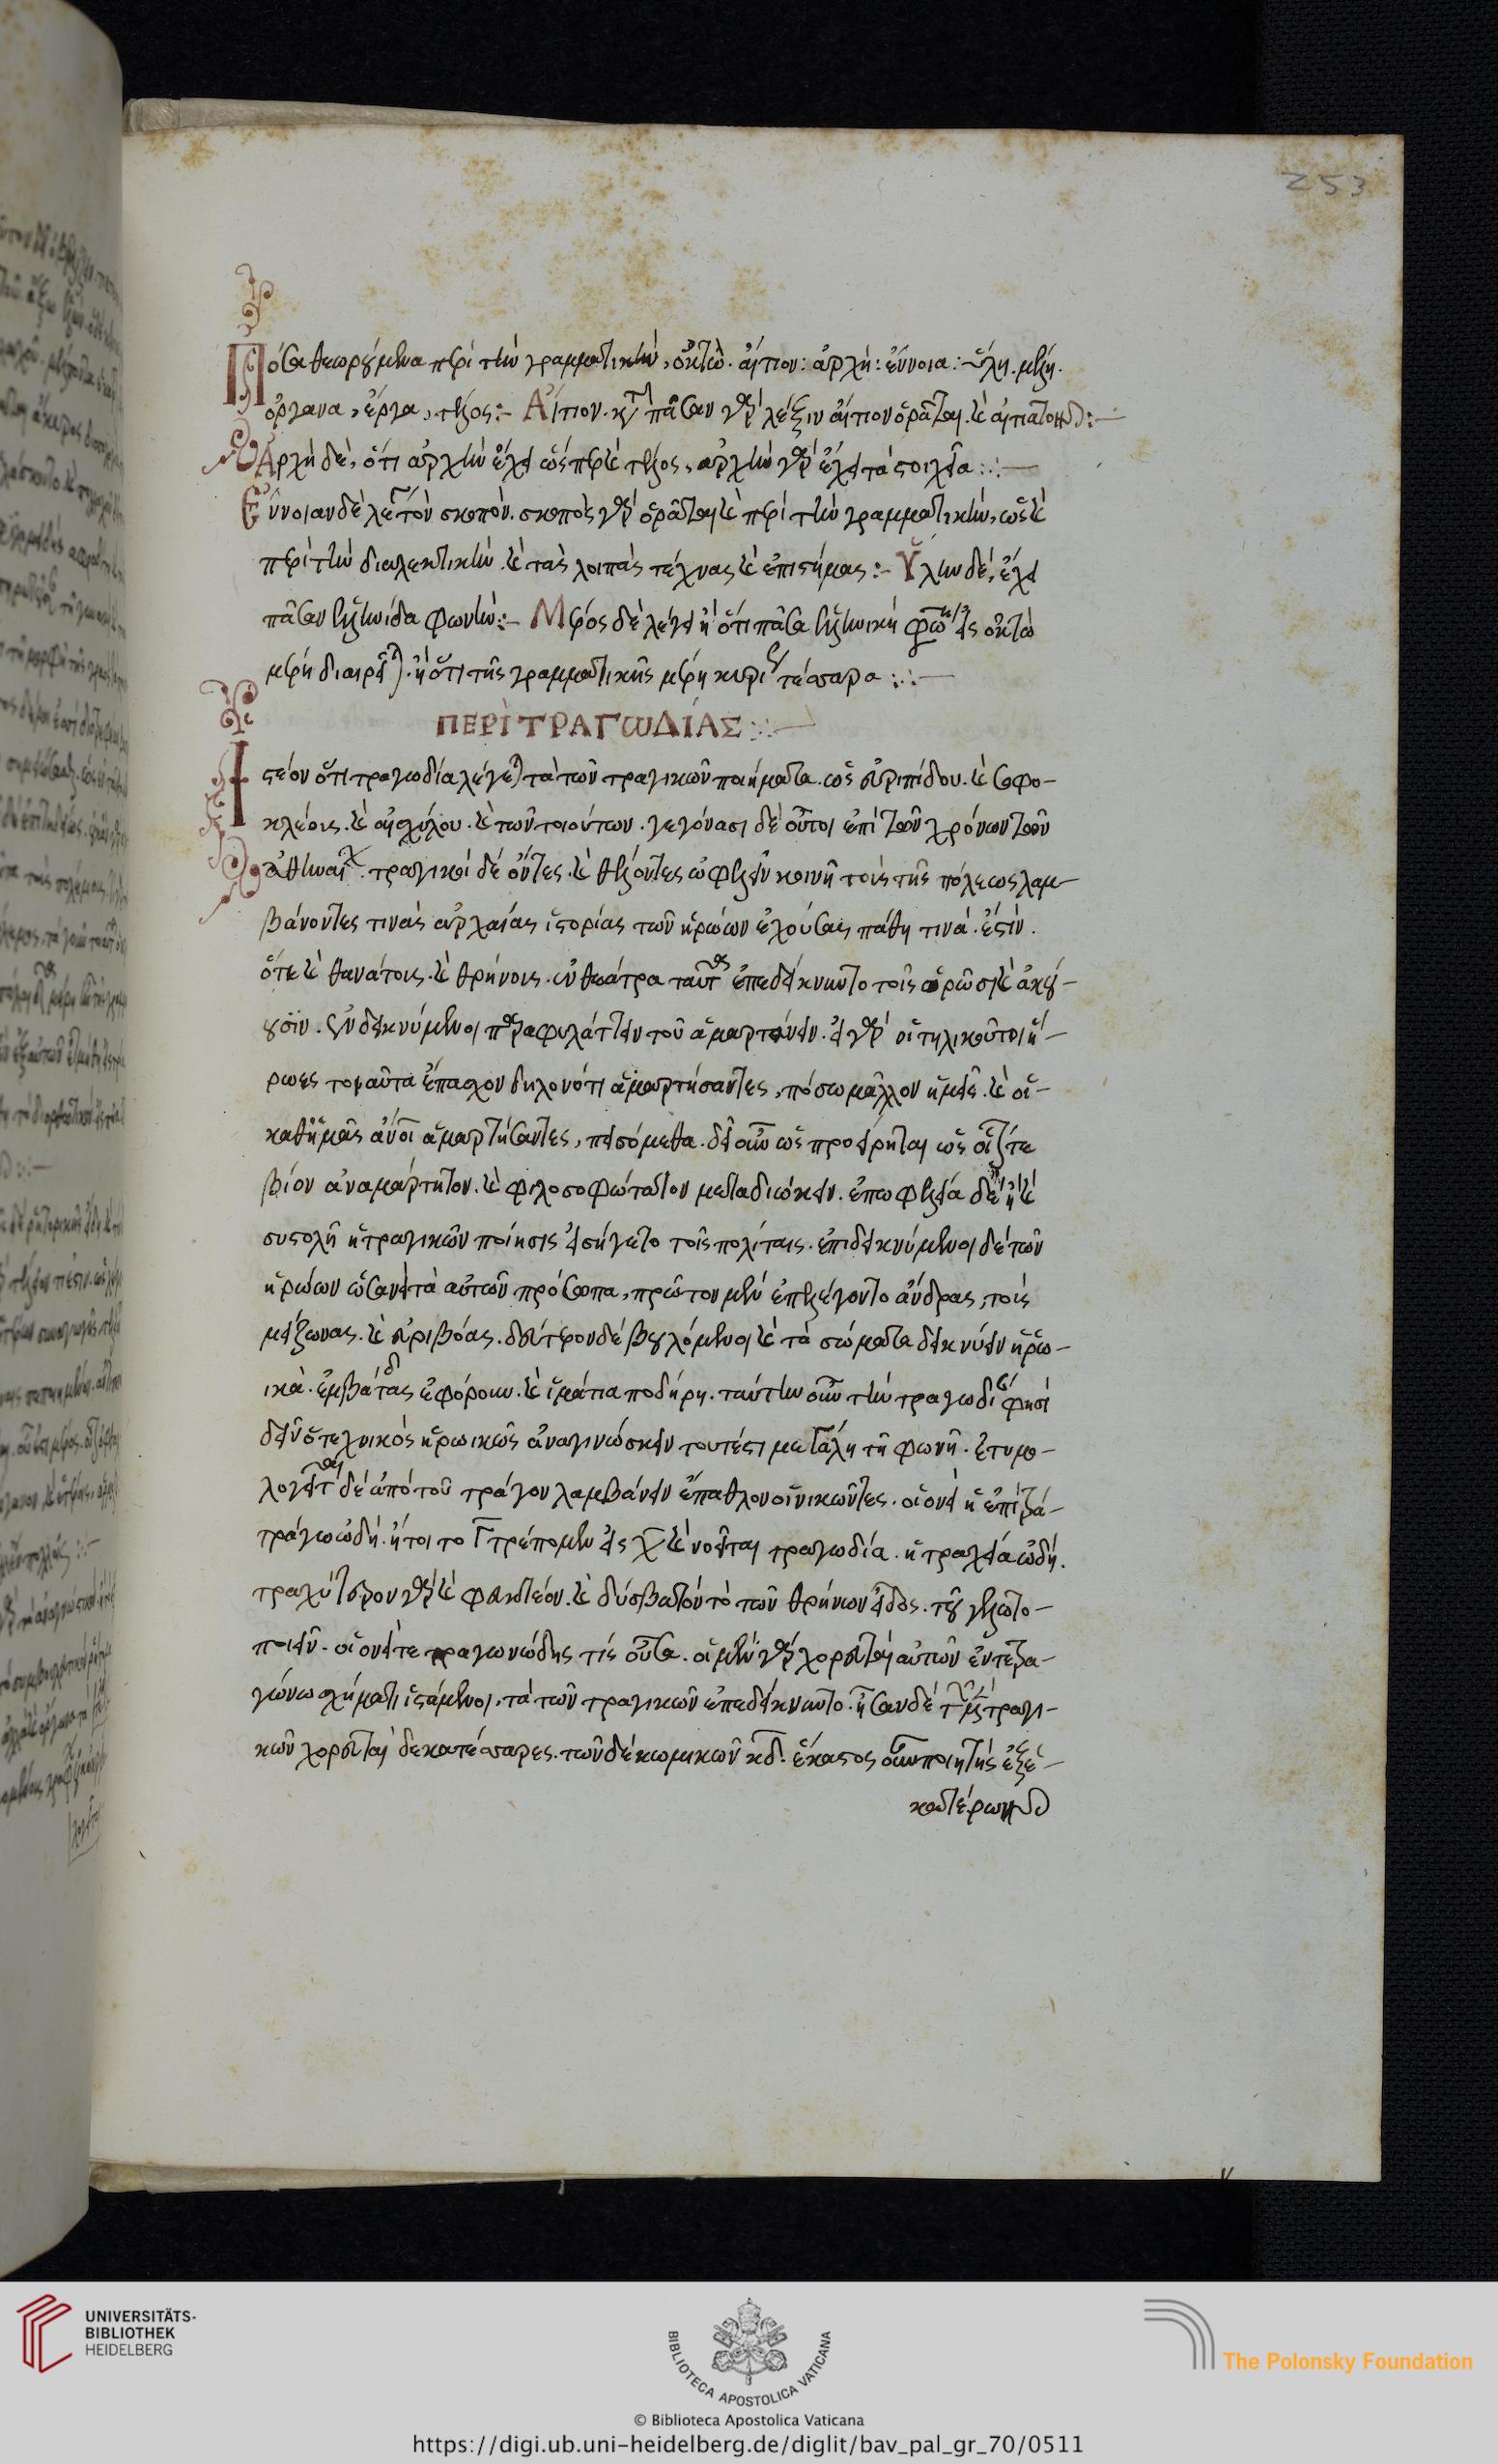 253
Πόσα θεωρούμενα περὶ τὴν γραμματικήν, ὀκτώ. αἴτιον: ἀρχή: ἔννοια: ὕλη. μέρη.
ὄργανα, ἔργα, τέλος:- Αἴτιον. κατὰ πᾶσαν γὰρ λέξιν αἴτιον ὁρᾶται. καὶ αἰτιατόν:-
Ἀρχὴ δὲ, ὅτι ἀρχὴν ἔχει ὥσπερ καὶ τέλος, ἀρχὴν γὰρ ἔχει τὰ στοιχεῖα:-
Ἔννοιαν δὲ λέγει τὸν σκοπόν. σκοπὸς γὰρ ὁρᾶται καὶ περὶ τὴν γραμματικήν, ὡς καὶ
περὶ τὴν διαλεκτικήν. καὶ τὰς λοιπὰς τέχνας καὶ ἐπιστήμας:- Ὕλην δέ, ἔχει
πᾶσαν ἑλληνίδα φωνήν:- Μέρος δὲ λέγει ἢ ὅτι πᾶσα ἑλληνικὴ φωνὴ εἰς ὀκτὼ
μέρη διαιρεῖται. ἢ ὅτι τῆς γραμματικῆς μέρη τέσσαρα:-
ΠΕΡὶ ΤΡΑΓΩΔίΑΣ:-
Ἰστέον ὅτι τραγωδία λέγεται τὰ τῶν τραγικῶν ποιήματα. ὡς εὐριπίδου. καὶ σοφο-
κλέους. καὶ αἰσχύλου. καὶ τῶν τοιούτων. γεγόνασι δὲ οὗτοι ἐπὶ τῶν χρόνων τῶν
ἀθηναίων. τραγικοὶ δὲ ὄντες. καὶ θέλοντες ὠφελεῖν κοινῇ τοὺς τῆς πόλεως λαμ-
βάνοντες τινὰς ἀρχαίας ἱστορίας τῶν ἡρώων ἐχούσας πάθη τινά. ἔστιν.
ὅτε καὶ θανάτους. καὶ θρήνους. ἐν θεάτρω ταῦτα ἐπεδείκνυντο τοῖς ὁρῶσι καὶ ἀκού-
ουσιν. ἐνδεικνύμενοι παραφυλάττειν τοῦ ἁμαρτάνειν. εἰ γὰρ οἱ τηλικοῦτοι ἥ-
ρωες τοιαῦτα ἔπασχον δηλονότι ἁμαρτήσαντες, πόσω μᾶλλον ἡμεῖς. καὶ οἱ-
καθ' ἡμᾶς ἄνοι ἁμαρτήσαντες, πεισόμεθα. δεῖ οὖν ὡς προείρηται ὡς οἷόν τε
βίον ἀναμάρτητον. καὶ φιλοσοφώτατον μεταδιώκειν. ἐπωφελεία δὲ
συστολῇ ἡ τραγικῶν ποίησις εἰσήγετο τοῖς πολίταις. ἐπιδεικνύμενοι δὲ τῶν
ἡρώων ὡσανεὶ τὰ αὐτῶν πρόσωπα, πρῶτον μὲν ἐπελέγοντο ἄνδρας, τοὺς
μείζονας. καὶ εὐριβόας. δεύτερον δὲ βουλόμενοι καὶ τὰ σώματα δεικνύειν ἡρω-
ικὰ. ἐμβάδας ἐφόρουν. καὶ ἱμάτια ποδήρη. ταύτην οὖν τὴν τραγωδίαν φησὶ
δεῖν ὁ τεχνικὸς ἡρωικῶς ἀναγινώσκειν τουτέστι μεγάλη τῇ φωνῇ. ἐτυμο-
λογεῖται δὲ ἀπὸ τοῦ τράγον λαμβάνειν ἔπαθλον οἱ νικῶντες. οἱονεὶ ἡ ἐπὶ
τράγω ὠδή. ἤτοι το Γ τρέπομεν εἰς χ καὶ νοεῖται τραγωδία. ἡ τραχεία ὠδή.
τραχύτερον γὰρ καὶ φευκτέον. καὶ δύσβατον τὸ τῶν θρήνων εἶδος. τοῦ γελωτο-
ποιεῖν. οἱονεὶ τετραγωνώδης τίς οὖσα. οἱ μὲν γὰρ χορευταὶ αὐτῶν ἐν τετρα-
γώνω σχήματι ἱστάμενοι, τὰ τῶν τραγικῶν ἐπεδείκνυντο. ἦσαν δὲ τραγι-
κῶν χορευταὶ δεκατέσσαρες. τῶν δὲ κωμικῶν κδ. ἕκαστος οὖν ποιητὴς ἐξ ἑ-
κατέρων
UNIVERSITÄTS-
BIBLIOTHEK
HEIDELBERG
BIBLIOTECA APOSTOLICA VATICANA
The Polonsky Foundation
© Biblioteca Apostolica Vaticana
https://digi.ub.uni-heidelberg.de/diglit/bav_pal_gr_70/0511